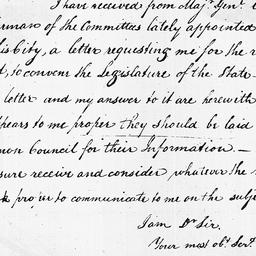 I have received from Maj. Genl.
rman of the Committees lately appointed
his City, a letter requesting me for the
to convene the Legislature of the State—
letter and my answer to it are herewith
pears to me proper they should be laid
mon Council for their Information.—
sure receive and consider whatever the
proper to communicate to me on the subj
I am Dr Sir,
Your most obt. Servt.